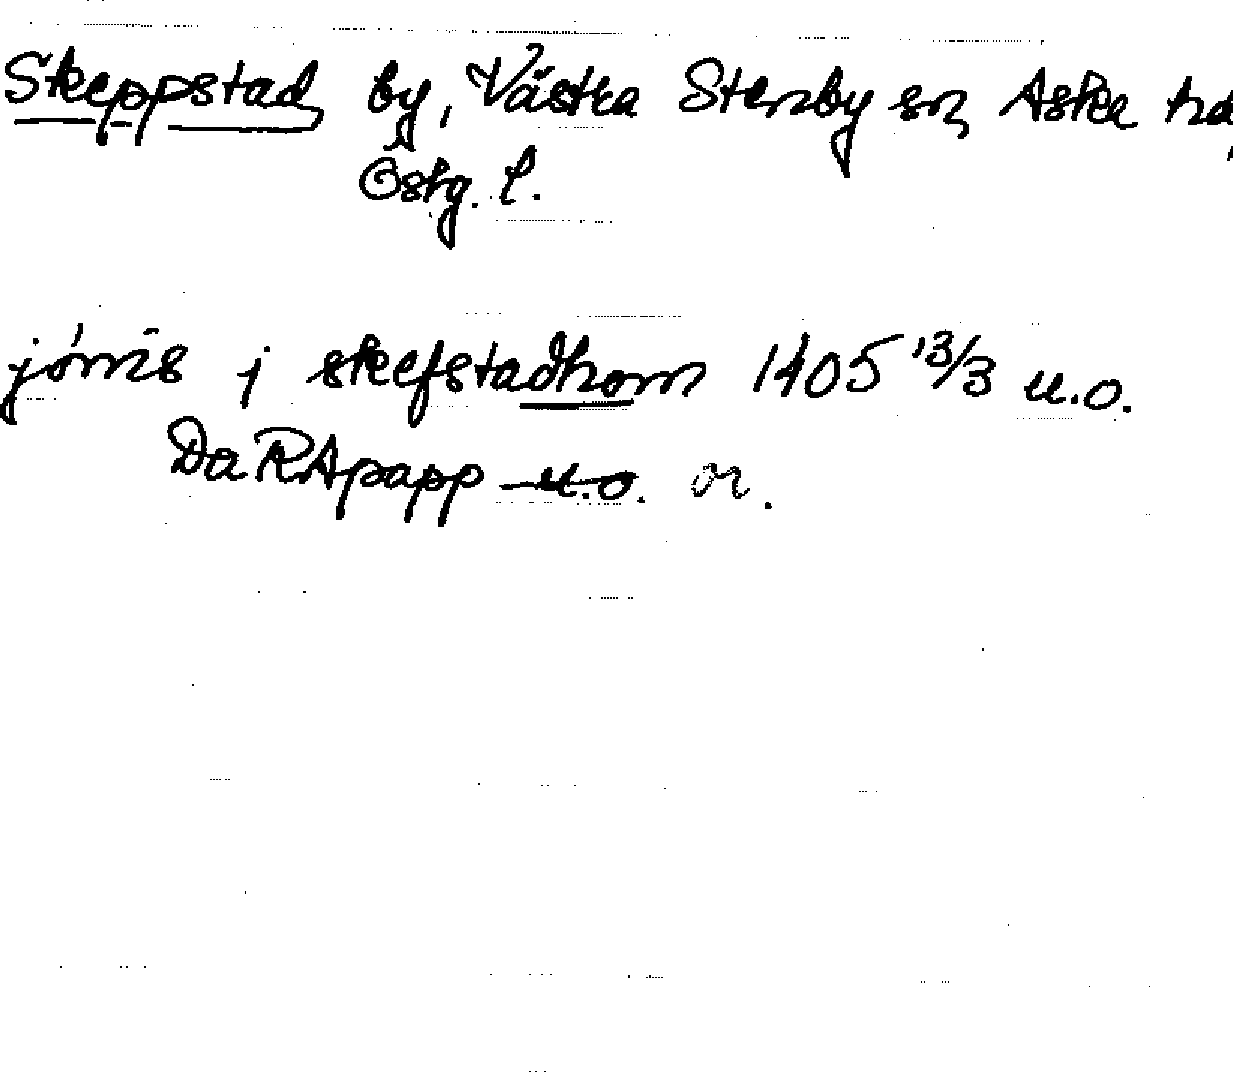 Skeppstad by, Västra Stenby sn, Aska hd,
Östg. l.
jönis j skefstadhom 1405 13/3 u.o.
Da RApapp u.o. or.